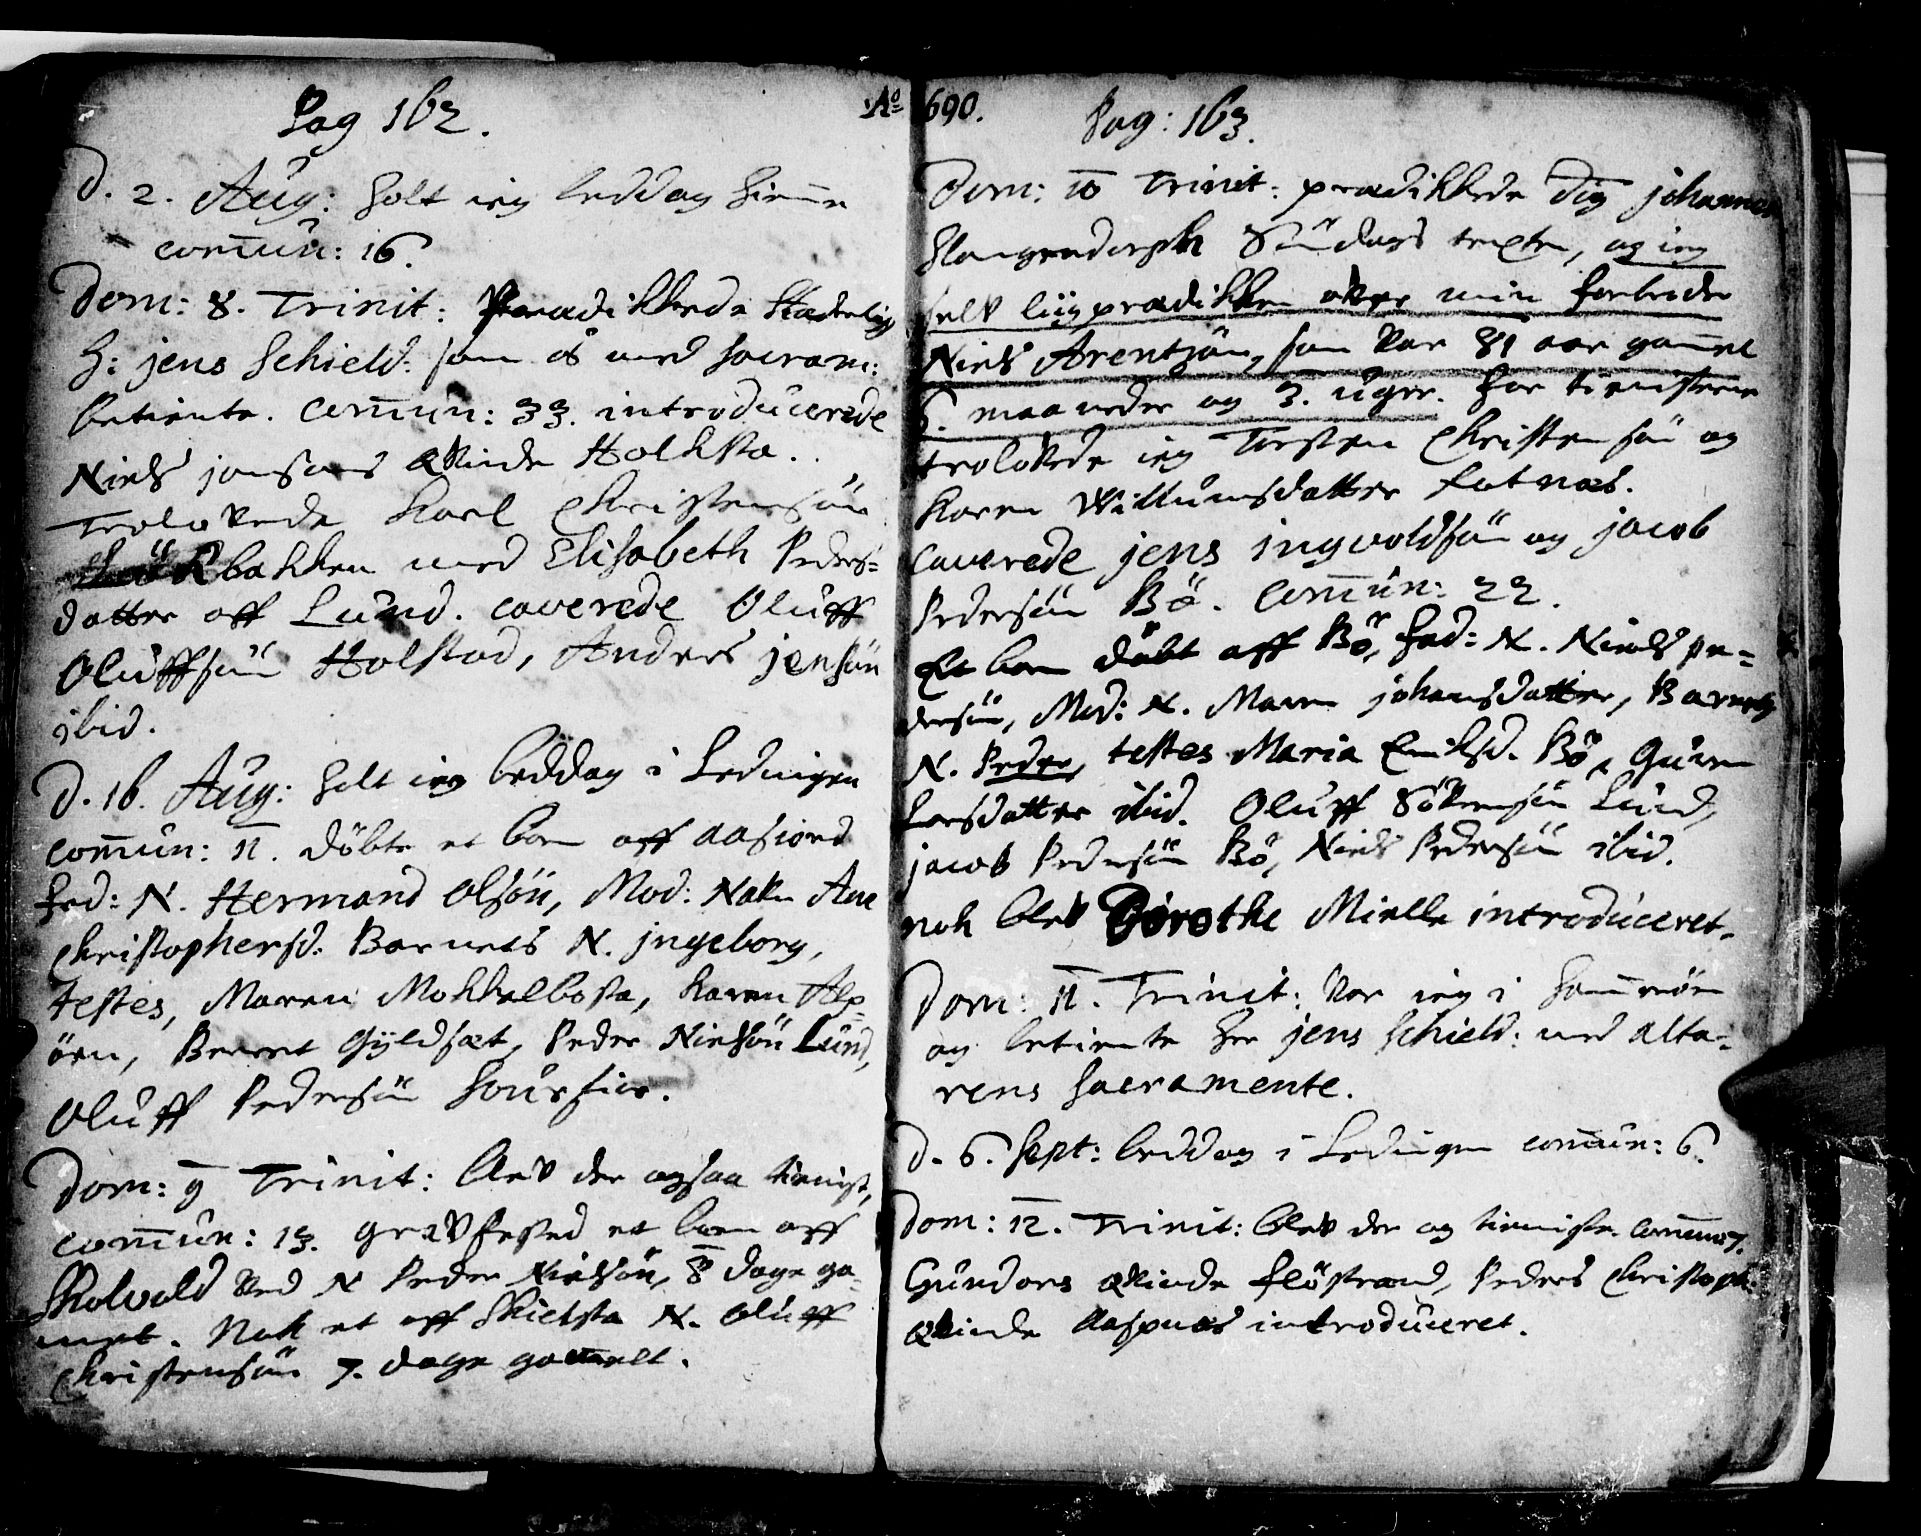 Pag 162.
d. 2. Aug: holt ieg beddag hiem̅e
com̅un: 16.
Dom: 8. Trinit: Prædikkede Hæderlig
H: jens Schield: som os med sacram:
betiente. com̅un: 33. introducerede
Niels jonsøns qvinde Holksta.
Trolovede Karl Christensøn
bakken med Elisabeth Peders=
datter aff Lund. caverede Oluff
Oluffsøn Holstad, Anders jensøn
ibid.
d. 16. Aug: holt ieg beddag i Ledingen
com̅un: 11. døbte et barn aff aafiord
Fad: N. Hermand Olsøn, Mod: Nafn Ane
Christophersd. Barnets N. jngeborg,
testes, Maren Mokkelbosta, Karen Alp=
øen, Berret Gyldsæt, Peder Nielsøn Lund,
Oluff Pedersøn
Dom: 9 Trinit: blev der ogsaa tienist,
com̅un: 13. gravfested et barn aff
Skolvold ved N Peder Nielsøn, 8 dage ga=
melt. Nok et aff Skielsta N. Oluff
Christensøn 7. dage gamelt.
Ao 1690.
Pag: 163.
Dom: 10 Trinit: prædikkede Dn̅ johannes
Slangendorph Søndags texten, og ieg
selv liigprædikken over min forbeder
Niels Arentsøn, som var 81 aar gam̅el
6. maaneder og 3. uger. for tienisten
trolovede ieg Torsten Christensøn og
Karen Willumsdatter Fatnæs.
caverede jens ingvoldsøn og jacob
Pedersøn Bø. Com̅un: 22.
Et barn døbt aff Bø, Fad: N. Niels pe=
dersøn, Mod: N. Maren johansdatter, Barnets
N. Peder, testes Maria Bø, Guren
Larsdatter ibid. Oluff Sørensøn Lund,
jacob Pedersøn Bø, Niels Pedersøn ibid.
nok blev Dorothe Mielle introduceret.
Dom: 11. Trinit: var ieg i
og betiente Her jens Schield: med alta=
rens sacramente.
d. 6. Sept: beddag i Ledingen com̅un: 6.
Dom: 12. Trinit: blev der og tieniste. com̅un 7.
Gundors qvinde fløstrand, Peders Christoph:
qvinde Aaspnæs introduceret.